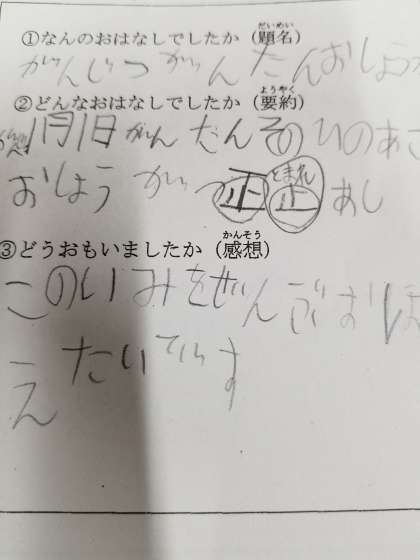 ①なんのおはなしでしたか（題名）
だいめい
がんじつ がんたん おしょうが
②どんなおはなしでしたか（要約）
ようやく
1月1日 がん たん そのひのあさ
おしょう がつ 正 止 あし
とまれ
③どうおもいましたか（感想）
かんそう
このいみをぜんぶおぼ
えたいです